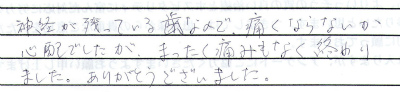 神経が残っている歯なので、痛くならないか
心配でしたが、まったく痛みもなく終わり
ました。ありがとうございました。